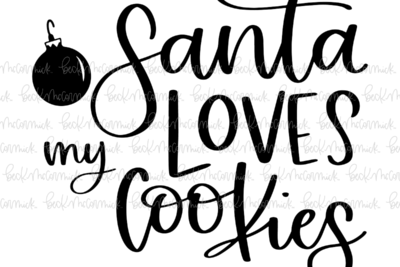 Santa
LOVES
my
Cookies